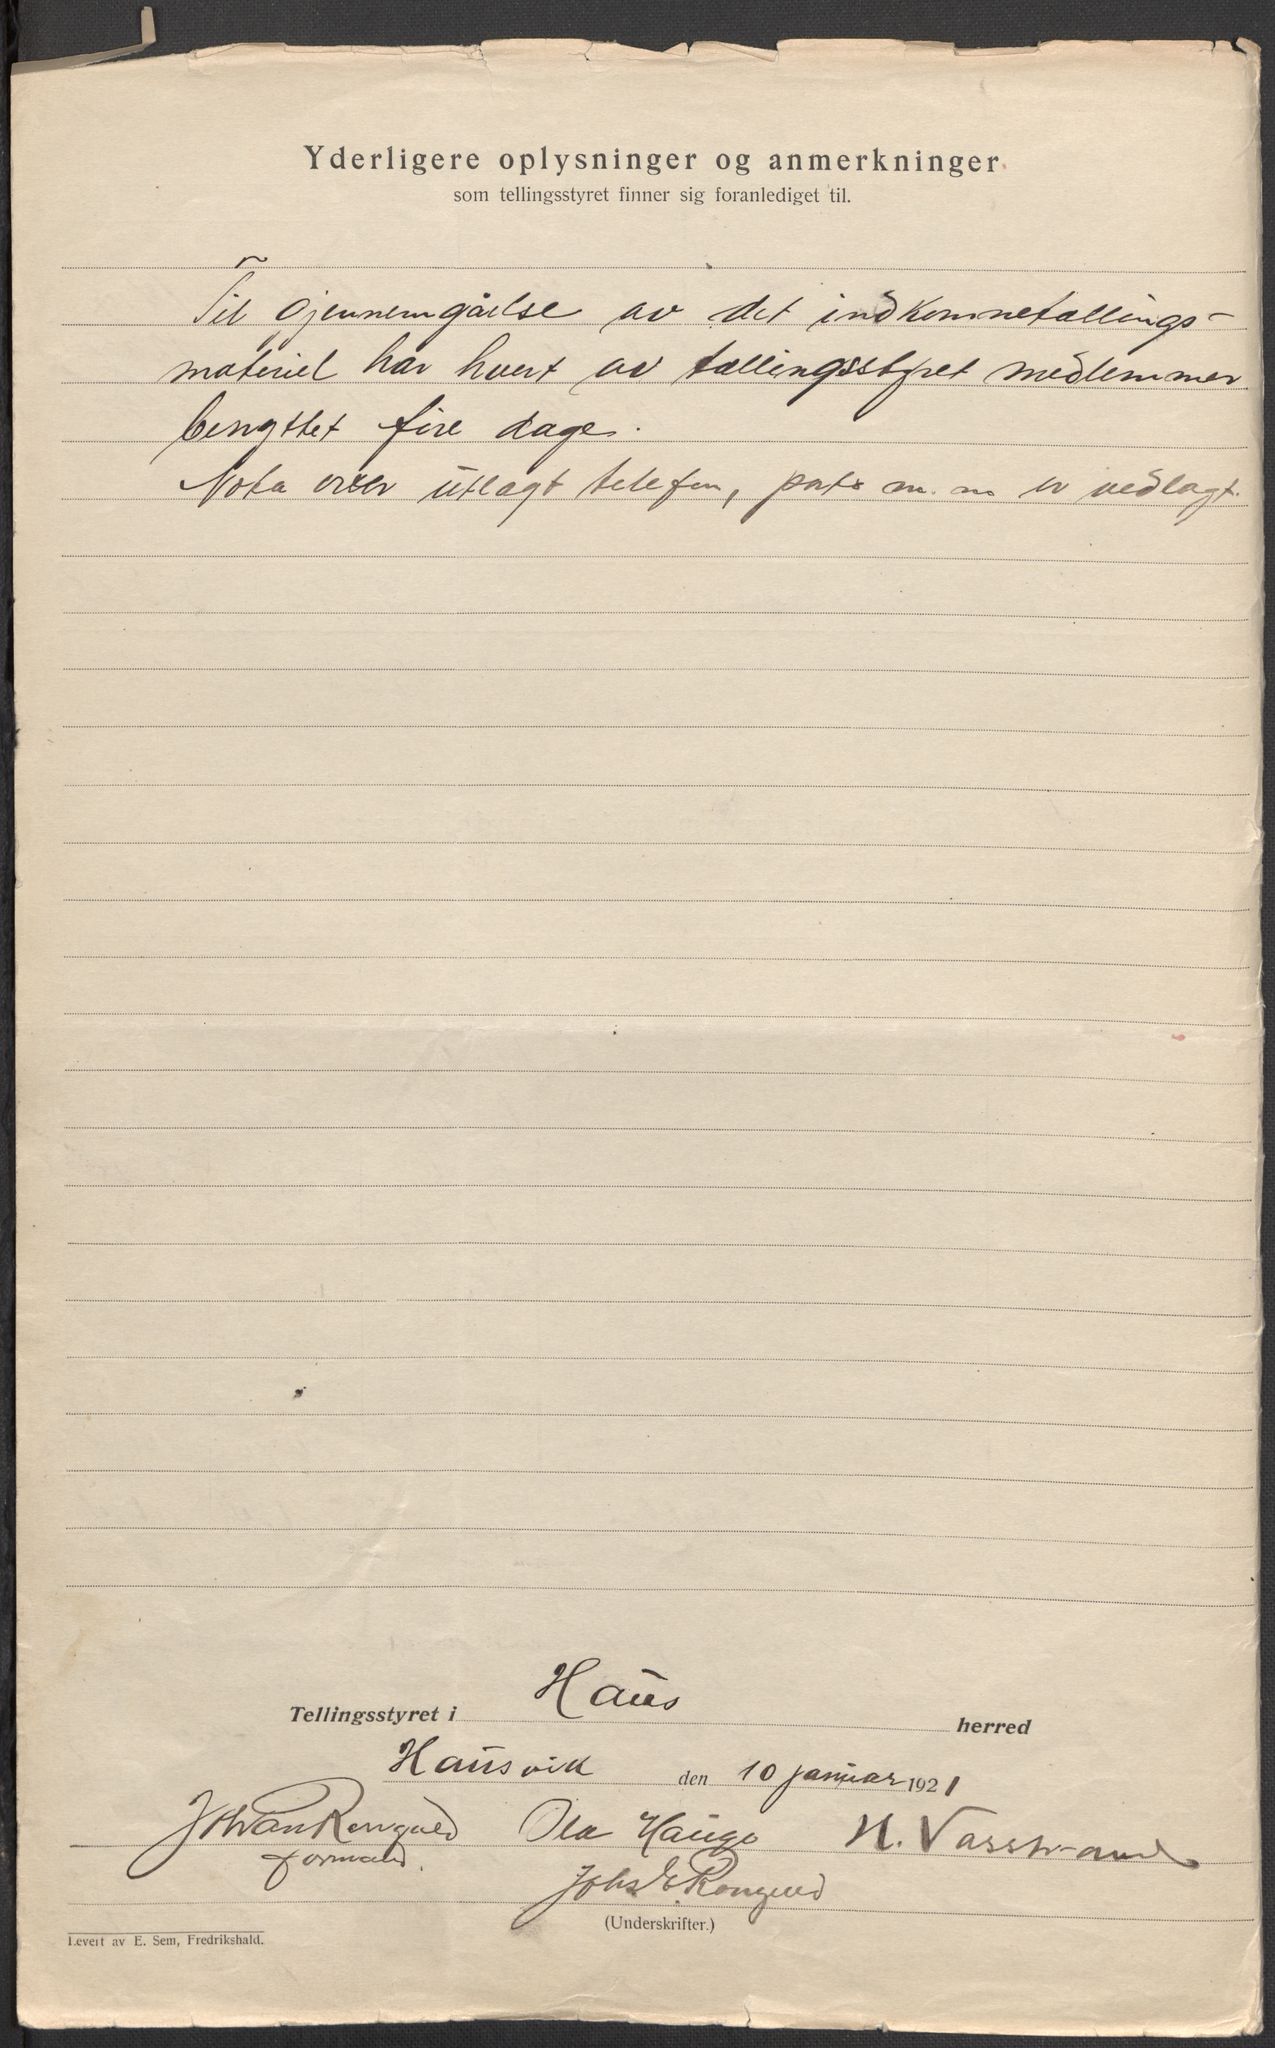 Yderligere oplysninger og anmerkninger
som tellingsstyret finner sig foranlediget til.
Til gjennemgåelse av det indkomnetællings-
materiel har hvert av tællingsstyret medlemmer
benyttet fire dage.
Nota over utlagt telefon, porto m. m er vedlagt.
Tellingsstyret i Haus herred
Hausvik den 10 januar 1921
Johan Rongved Ola Hauge H. Vasstrand
formand.
Johs E. Rongved
(Underskrifter.)
Levert av E. Sem, Fredrikshald.